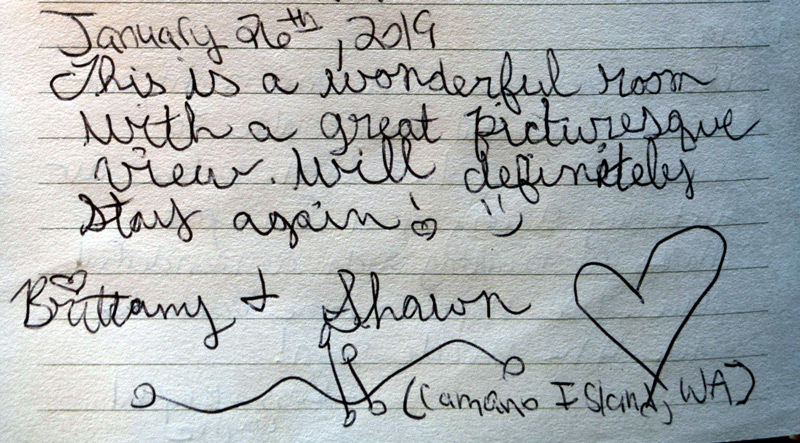 January 26th, 2019
This is a wonderful room
with a great picturesque
view. Will definetely
stay again! :)
Brittany & Shawn
(Camano Island, WA)